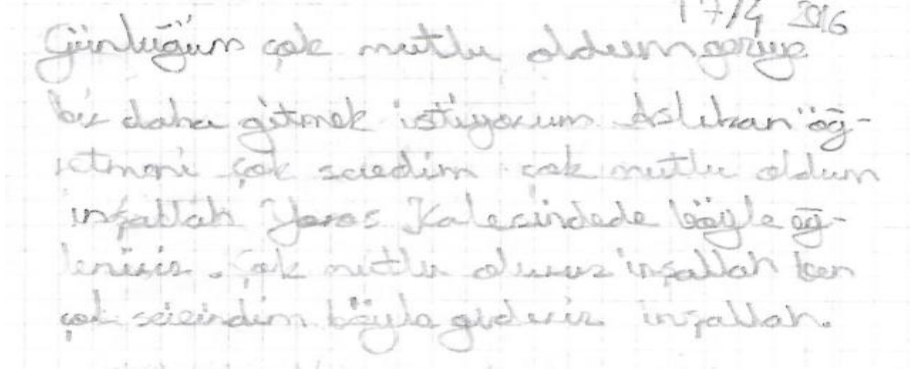 17/4 2016
Günlüğüm çok mutlu oldum
bir daha gitmek istiyorum Aslıhan öğ-
retmeni çok sevdim çok mutlu oldum
inşallah Yoros Kalesindede böyle eğ-
leniriz. Çok mutlu oluruz inşallah ben
çok sevindim böyle gideriz inşallah.